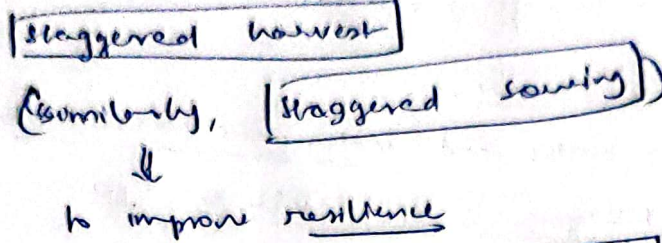 staggered harvest
(similarly, staggered sowing)
⇓
to improve resilience